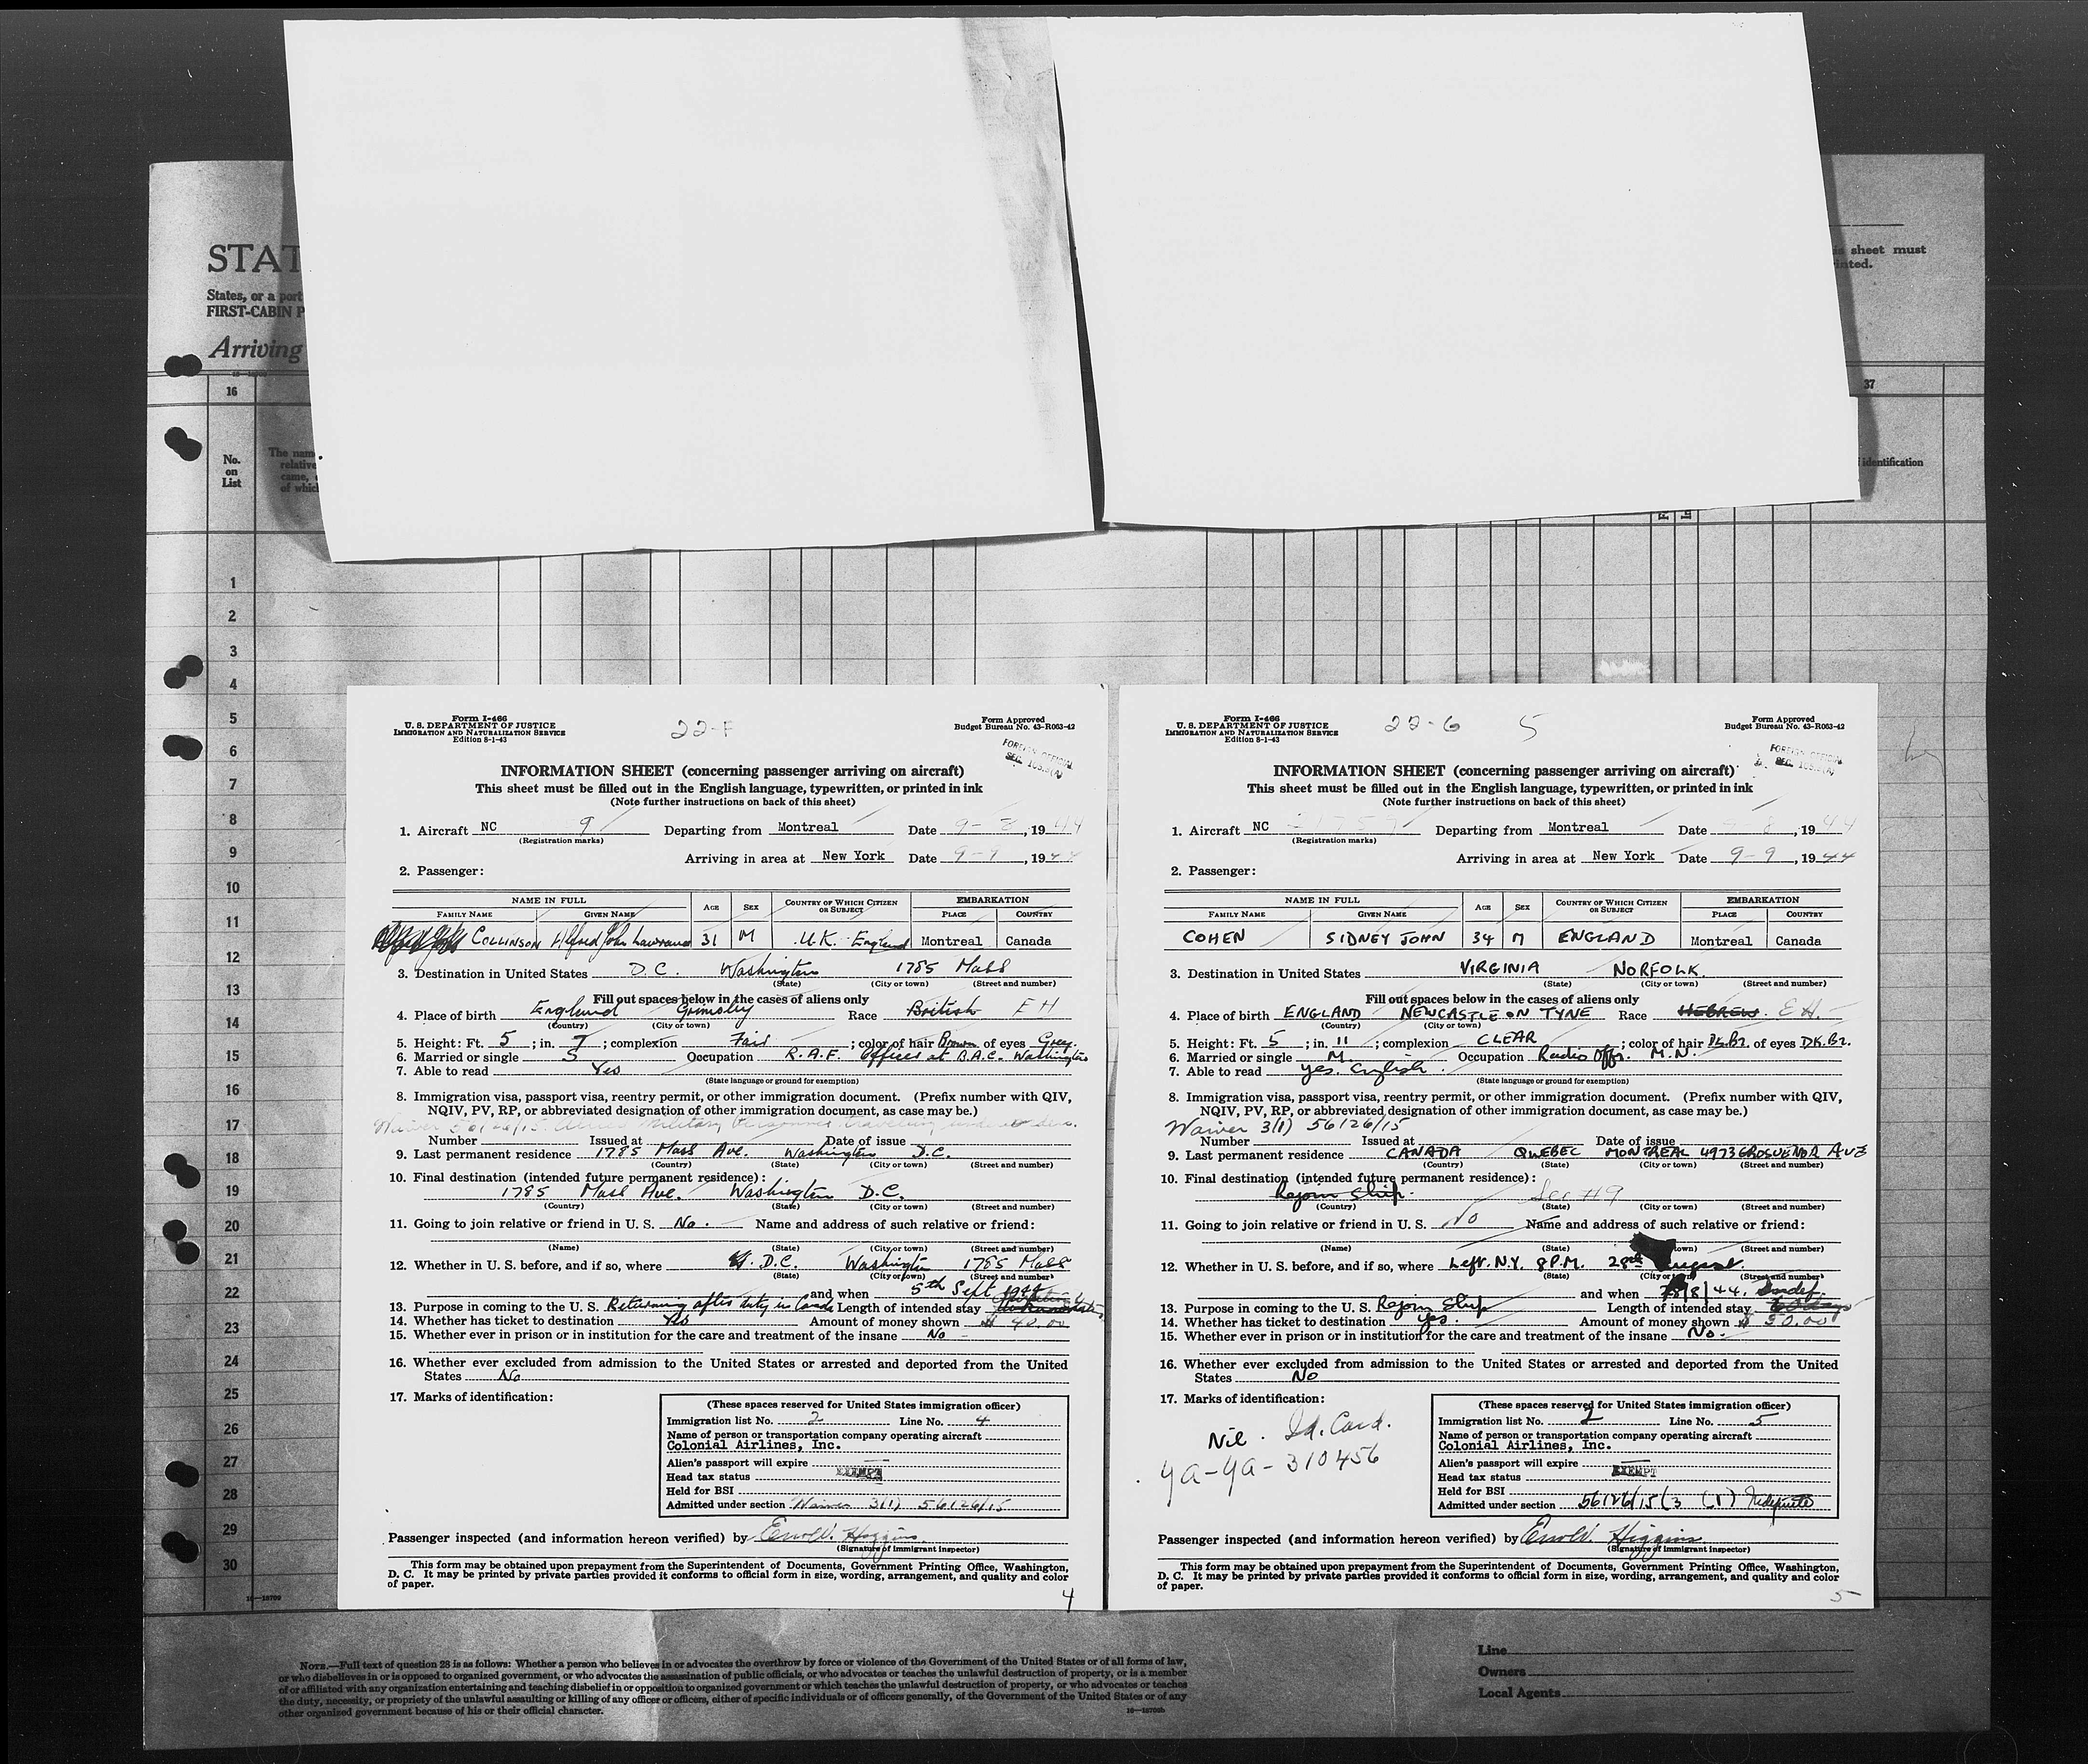 STAT
States, or a port
FIRST-CABIN P
Arriving
is sheet must
inted.
16
37
No.
on
List
The nam
relative
came,
of whic
identification
1
2
3
4
5
6
7
8
9
10
11
12
13
14
15
16
17
18
19
20
21
22
23
24
25
26
27
28
29
30
Form I-466
U. S. DEPARTMENT OF JUSTICE
IMMIGRATION AND NATURALIZATION SERVICE
Edition 8-1-43
22-F
Form Approved
Budget Bureau No. 43-R063-42
FOREIGN OFFICIAL
SEC.
INFORMATION SHEET (concerning passenger arriving on aircraft)
This sheet must be filled out in the English language, typewritten, or printed in ink
(Note further instructions on back of this sheet)
1. Aircraft NC 9 Departing from Montreal Date 9-8, 1944
(Registration marks)
Arriving in area at New York Date 9-9, 1944
2. Passenger:
NAME IN FULL AGE SEX COUNTRY OF WHICH CITIZEN OR SUBJECT EMBARKATION
FAMILY NAME GIVEN NAME PLACE COUNTRY
COLLINSON Alfred John Lawrance 31 M U.K. England Montreal Canada
3. Destination in United States D.C. Washington 1785 Mass
(State) (City or town) (Street and number)
Fill out spaces below in the cases of aliens only
4. Place of birth England Grimsby Race British E H
(Country) (City or town)
5. Height: Ft. 5; in. 7; complexion Fair; color of hair Brown of eyes Grey.
6. Married or single S Occupation R.A.F. Officer at B.A.C. Washington
7. Able to read Yes
(State language or ground for exemption)
8. Immigration visa, passport visa, reentry permit, or other immigration document. (Prefix number with QIV,
NQIV, PV, RP, or abbreviated designation of other immigration document, as case may be.)
Waiver 56126/15 Military Personnel Traveling under
Number Issued at Date of issue
9. Last permanent residence 1785 Mass Ave. Washington D.C.
(Country) (State) (City or town) (Street and number)
10. Final destination (intended future permanent residence):
1785 Mass Ave. Washington D.C.
(Country) (State) (City or town) (Street and number)
11. Going to join relative or friend in U. S. No. Name and address of such relative or friend:
(Name) (State) (City or town) (Street and number)
12. Whether in U. S. before, and if so, where D.C. Washington 1785 Mass
(State) (City or town) (Street and number)
and when 5th Sept 1944
13. Purpose in coming to the U. S. Returning after duty in Canada Length of intended stay
14. Whether has ticket to destination Yes Amount of money shown $ 40.00
15. Whether ever in prison or in institution for the care and treatment of the insane No
16. Whether ever excluded from admission to the United States or arrested and deported from the United
States No
17. Marks of identification:
(These spaces reserved for United States immigration officer)
Immigration list No. 2 Line No. 4
Name of person or transportation company operating aircraft
Colonial Airlines, Inc.
Alien's passport will expire
Head tax status EXEMPT
Held for BSI
Admitted under section Waiver 3(1) 56126/15
Passenger inspected (and information hereon verified) by Errol W. Higgins
(Signature of immigrant inspector)
This form may be obtained upon prepayment from the Superintendent of Documents, Government Printing Office, Washington,
D. C. It may be printed by private parties provided it conforms to official form in size, wording, arrangement, and quality and color
of paper.
4
Form I-466
U. S. DEPARTMENT OF JUSTICE
IMMIGRATION AND NATURALIZATION SERVICE
Edition 8-1-43
22-G 5
Form Approved
Budget Bureau No. 43-R063-42
FOREIGN OFFICIAL
SEC.
INFORMATION SHEET (concerning passenger arriving on aircraft)
This sheet must be filled out in the English language, typewritten, or printed in ink
(Note further instructions on back of this sheet)
1. Aircraft NC Departing from Montreal Date 8, 1944
(Registration marks)
Arriving in area at New York Date 9-9, 1944
2. Passenger:
NAME IN FULL AGE SEX COUNTRY OF WHICH CITIZEN OR SUBJECT EMBARKATION
FAMILY NAME GIVEN NAME PLACE COUNTRY
COHEN SIDNEY JOHN 34 M ENGLAND Montreal Canada
3. Destination in United States VIRGINIA NORFOLK.
(State) (City or town) (Street and number)
Fill out spaces below in the cases of aliens only
4. Place of birth ENGLAND NEWCASTLE ON TYNE Race HEBREW. E H.
(Country) (City or town)
5. Height: Ft. 5; in. 11; complexion CLEAR; color of hair Dk.Br. of eyes DK.Br.
6. Married or single M. Occupation Radio Offr. M.N.
7. Able to read yes. English.
(State language or ground for exemption)
8. Immigration visa, passport visa, reentry permit, or other immigration document. (Prefix number with QIV,
NQIV, PV, RP, or abbreviated designation of other immigration document, as case may be.)
Waiver 3(1) 56126/15
Number Issued at Date of issue
9. Last permanent residence CANADA QUEBEC MONTREAL 4973 GROSVENOR AVE
(Country) (State) (City or town) (Street and number)
10. Final destination (intended future permanent residence):
Rejoin Ship. See #9
(Country) (State) (City or town) (Street and number)
11. Going to join relative or friend in U. S. No Name and address of such relative or friend:
(Name) (State) (City or town) (Street and number)
12. Whether in U. S. before, and if so, where Left. N.Y. 8 P.M. 28th August.
(State) (City or town) (Street and number)
and when 28/8/44. Indef.
13. Purpose in coming to the U. S. Rejoin Ship Length of intended stay
14. Whether has ticket to destination yes. Amount of money shown $ 50.00
15. Whether ever in prison or in institution for the care and treatment of the insane No.
16. Whether ever excluded from admission to the United States or arrested and deported from the United
States No
17. Marks of identification:
Nil. Id. Card.
ya-ya-310456
(These spaces reserved for United States immigration officer)
Immigration list No. 2 Line No. 5
Name of person or transportation company operating aircraft
Colonial Airlines, Inc.
Alien's passport will expire
Head tax status EXEMPT
Held for BSI
Admitted under section 56126/15 (3 (1) Indefinite
Passenger inspected (and information hereon verified) by Errol W. Higgins
(Signature of immigrant inspector)
This form may be obtained upon prepayment from the Superintendent of Documents, Government Printing Office, Washington,
D. C. It may be printed by private parties provided it conforms to official form in size, wording, arrangement, and quality and color
of paper.
5
16—18709
NOTE.—Full text of question 28 is as follows: Whether a person who believes in or advocates the overthrow by force or violence of the Government of the United States or of all forms of law,
or who disbelieves in or is opposed to organized government, or who advocates the assassination of public officials, or who advocates or teaches the unlawful destruction of property, or is a member
of or affiliated with any organization entertaining and teaching disbelief in or opposition to organized government or which teaches the unlawful destruction of property, or who advocates or teaches
the duty, necessity, or propriety of the unlawful assaulting or killing of any officer or officers, either of specific individuals or of officers generally, of the Government of the United States or of any
other organized government because of his or their official character.
Line
Owners
Local Agents